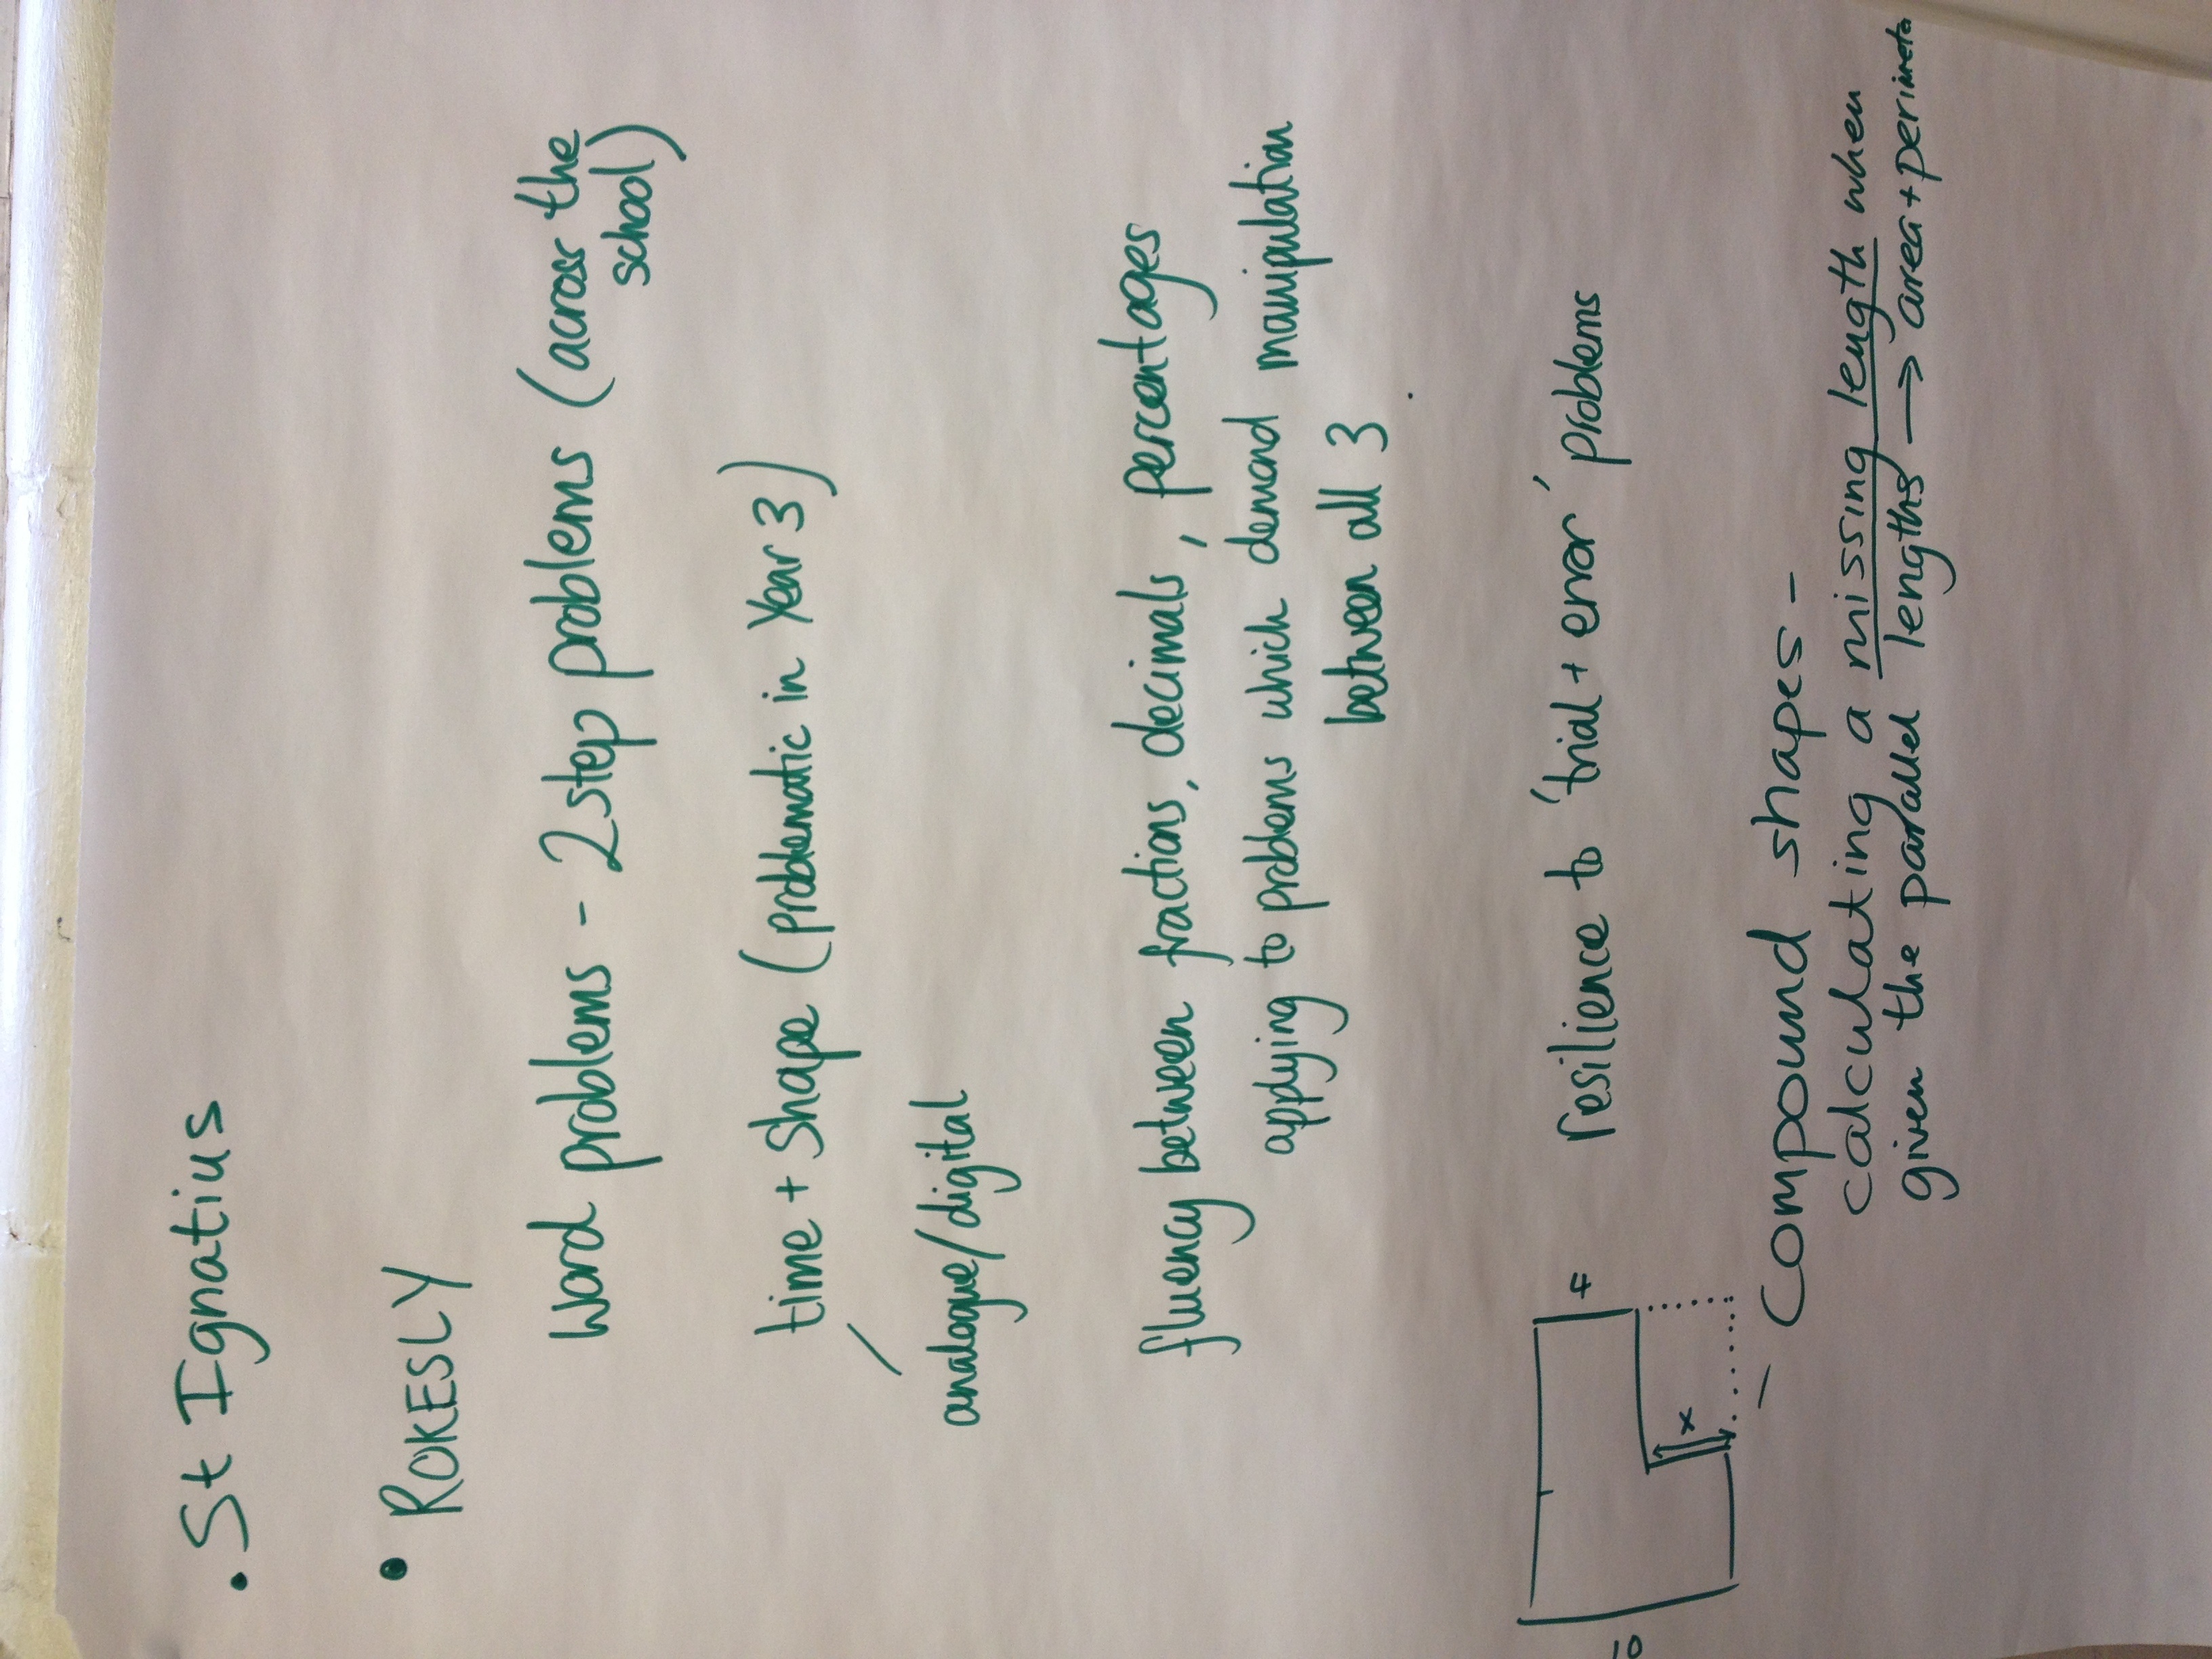 • St Ignatius
• ROKESLY
Word problems - 2 step problems (across the
school)
time + shape (problematic in Year 3)
analogue/digital
fluency between fractions, decimals, percentages
applying to problems which demand manipulation
between all 3.
resilience to 'trial + error' problems
10
4
x
- Compound shapes -
calculating a missing length when
given the parallel lengths → area + perimeter